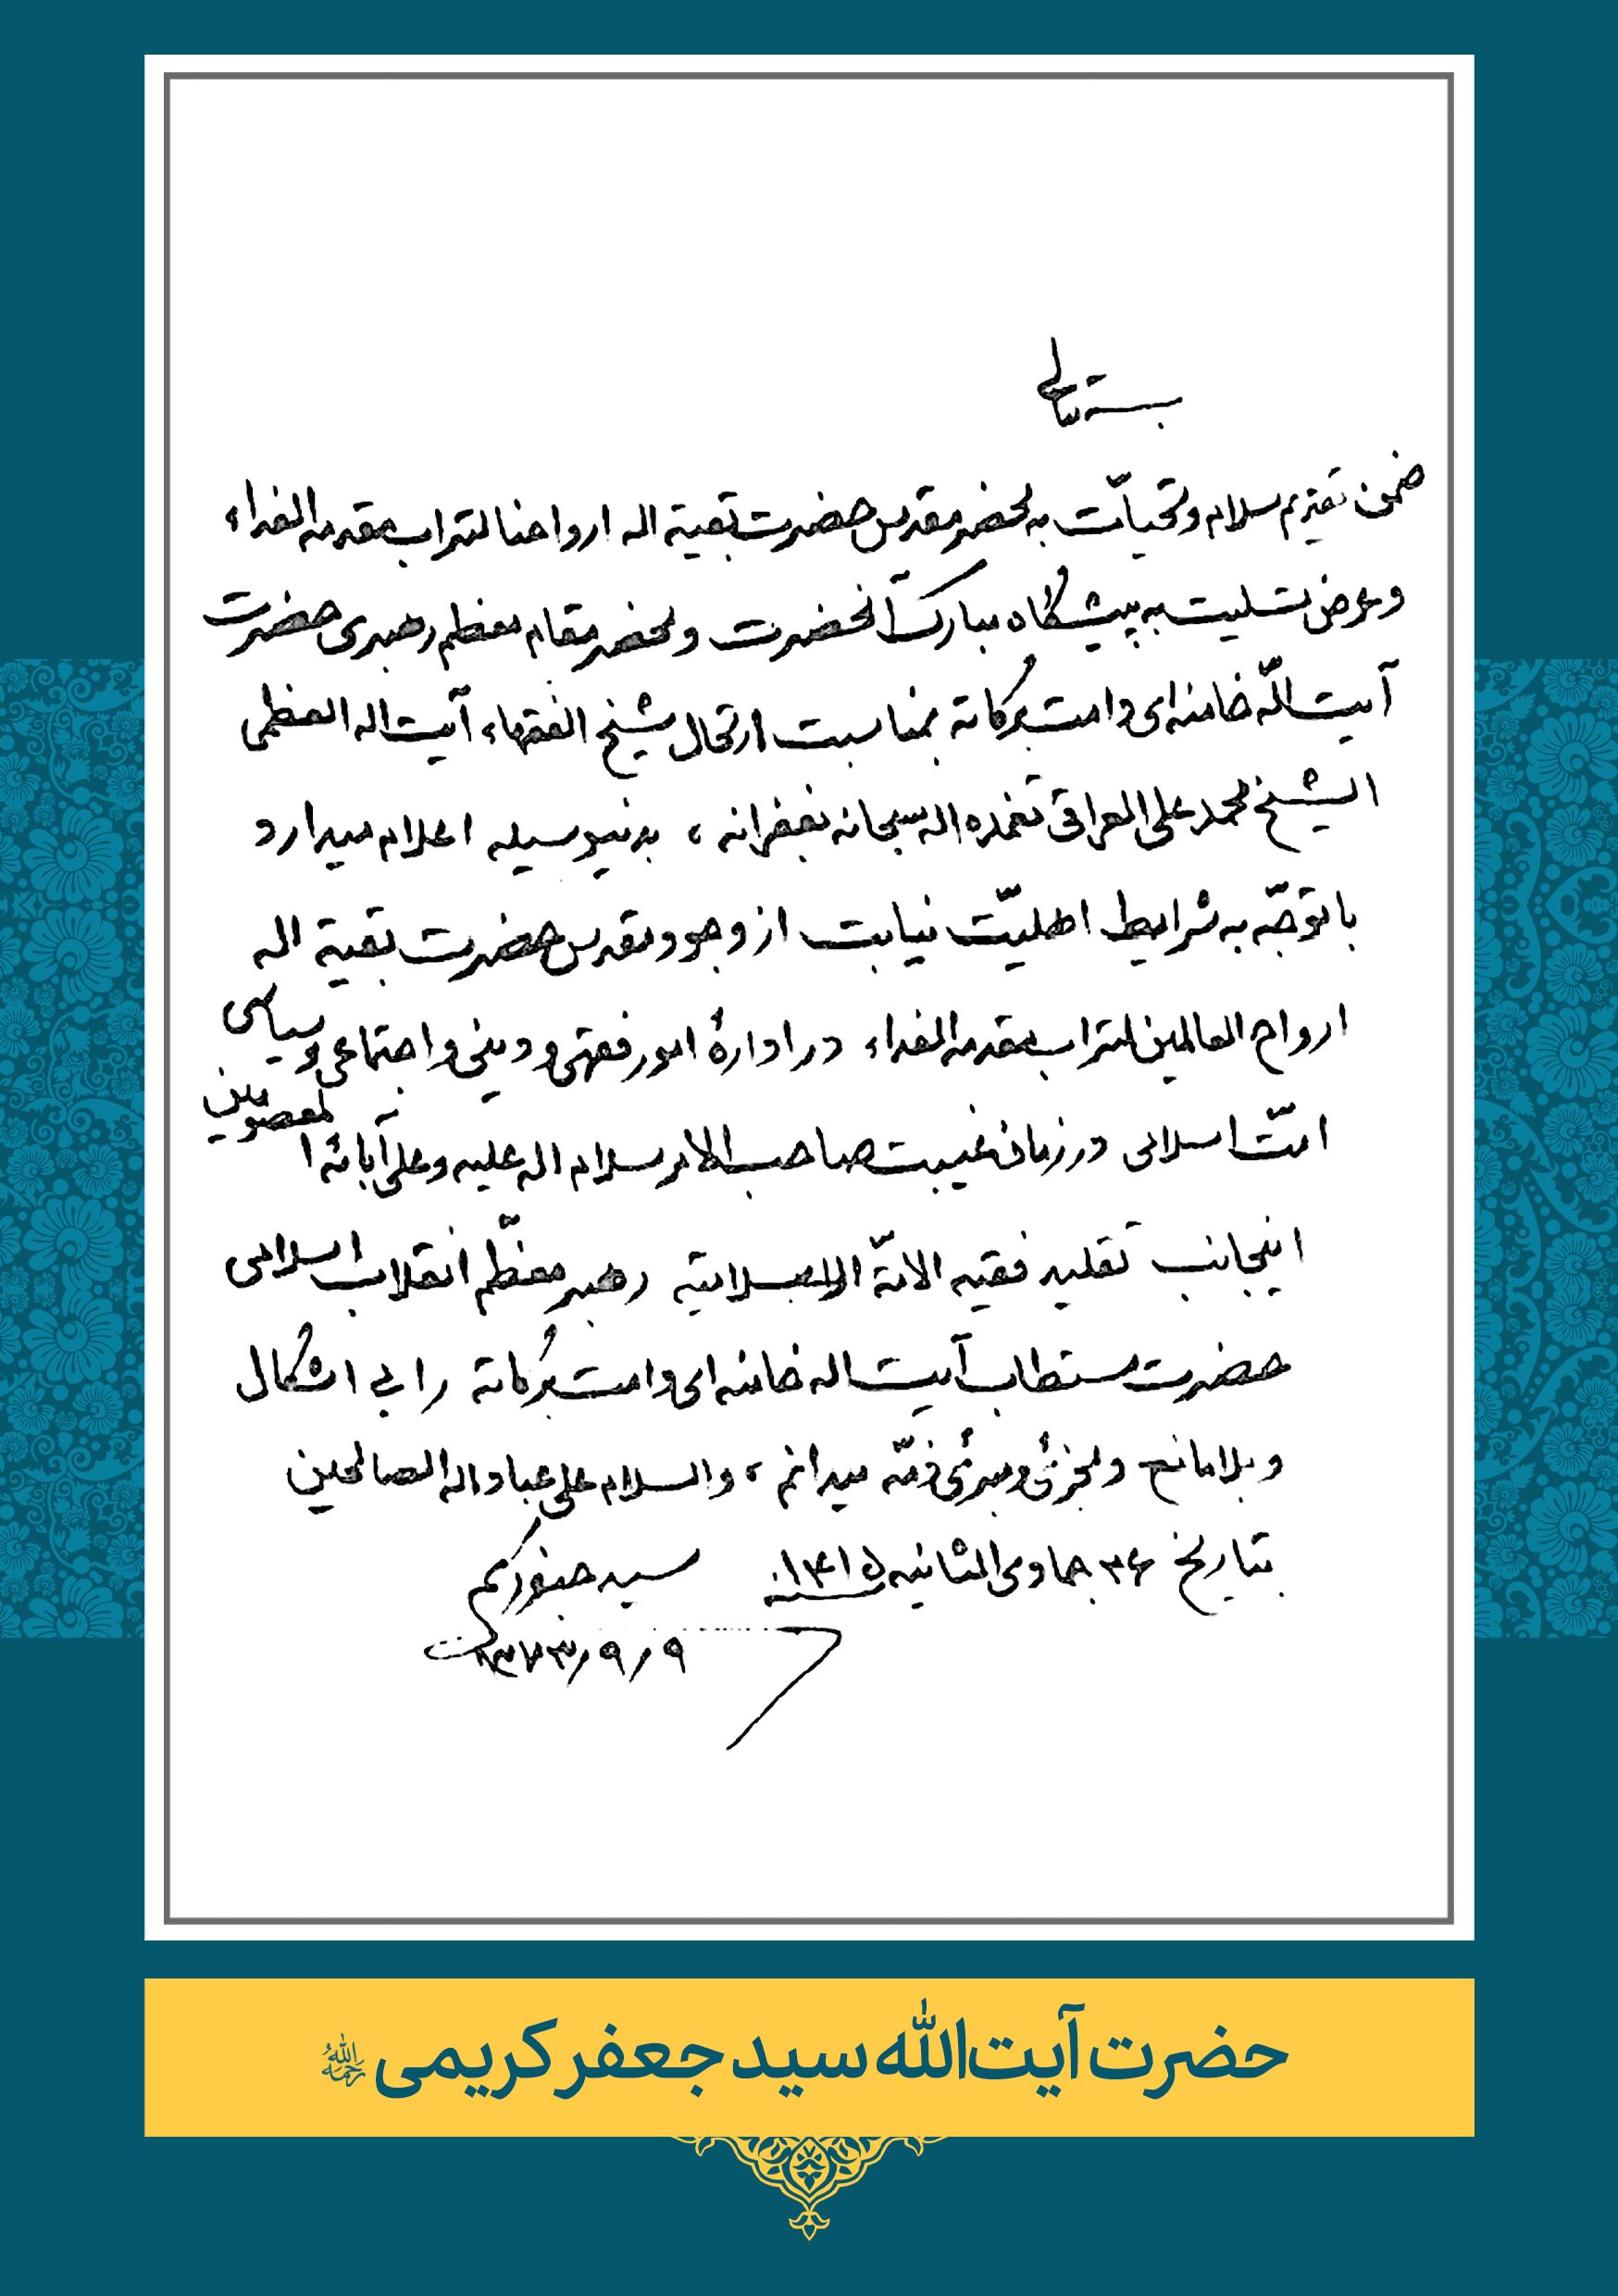 بسمه تعالی
ضمن تقدیم سلام و تحیّات به محضر مقدس حضرت بقیة اله ارواحنا لتراب مقدمه الفداء
و عرض تسلیت به پیشگاه مبارک آنحضرت و محضر مقام معظم رهبری حضرت
آیت اللّه خامنه ای دامت برکاته بمناسبت ارتحال شیخ الفقهاء آیت اله العظمی
الشیخ محمد علی العراقی تغمده اله سبحانه بغفرانه ، بدینوسیله اعلام میدارد
با توجّه به شرایط اهلیّت نیابت از وجود مقدس حضرت بقیة اله
ارواح العالمین لتراب مقدمه الفداء در ادارهٔ امور فقهی و دینی و اجتماعی و سیاسی
امّت اسلامی در زمان غیبت صاحب الامر سلام اله علیه و علی آبائه المعصومین
اینجانب تقلید فقیه الامّة الاسلامیّة رهبر معظّم انقلاب اسلامی
حضرت مستطاب آیت اله خامنه ای دامت برکاته را بی اشکال
و بلامانع و مجزئ و مبرئ ذمّه میدانم ، والسلام علی عباد اله الصالحین
بتاریخ ۲۶ جمادی الثانیه ۱۴۱۵ سید جعفر کریمی
۱۳۷۳/۹/۹
حضرت آیت‌الله سید جعفر کریمی رحمه‌الله